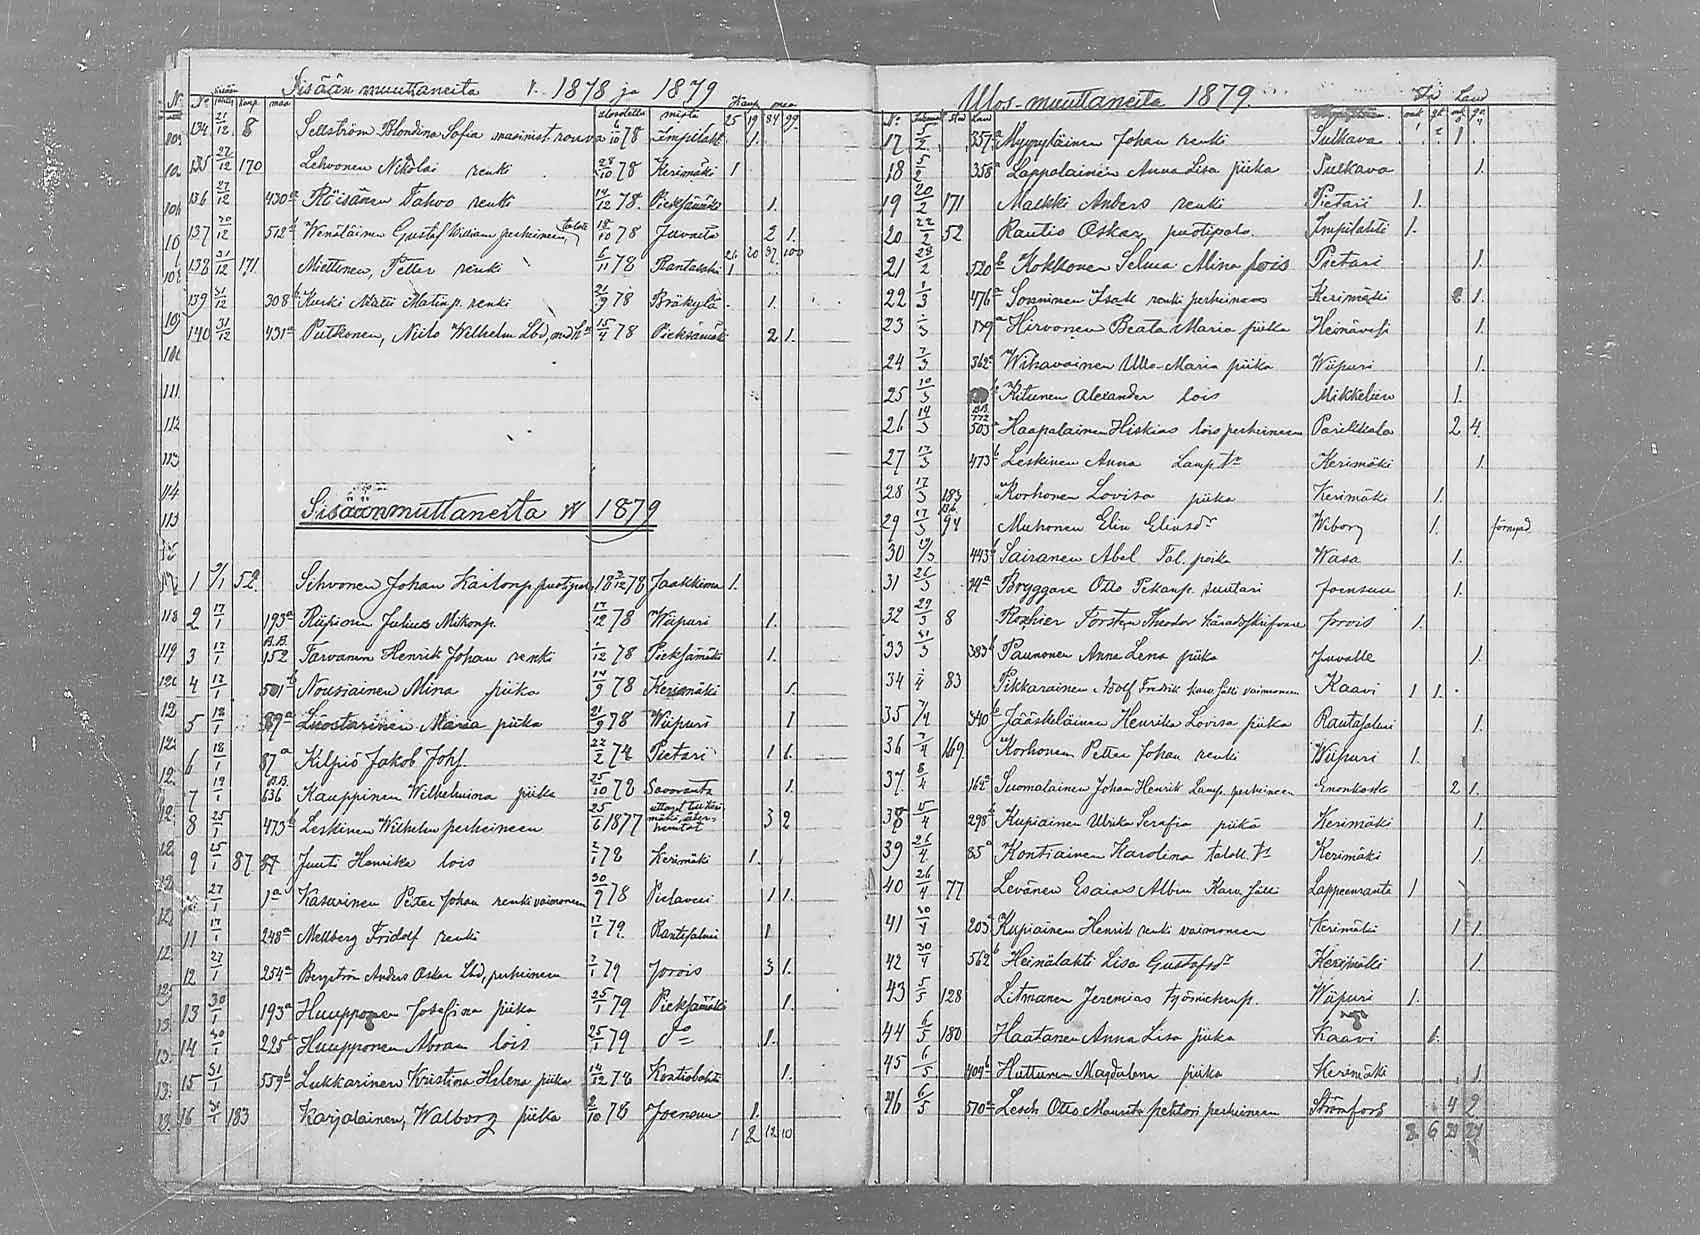 Sisään muuttaneita v. 1878 ja 1879
No Kaup. maa mistä Kaup maa
25 19 84 99
134 21/12 8 Sellström Blondina Sofia masinist. rouva 6/10 78 Impilaht 1.
135 27/12 170 Lehvonen Nikolai renki 28/10 78 Kerimäki 1
136 27/12 430a Röisänen Tahvo renki 14/12 78. Pieksämäki 1.
137 30/12 512 Wenäläinen Gustaf William perheineen 18/10 78 Juvalta 2 1.
26 20 87 100
138 31/12 171. Miettinen, Petter renki 6/11 78 Rantasalmi 1
139 31/12 308b Kurki Matti Matinp. renki 21/9 78 Bräkylä 1.
140 31/12 431a Putkonen, Niilo Wilhelm 15/9 78 Pieksämäki 2 1.
111
112
113
114
Sisäänmuttaneita v 1879
1 2/1 52. Sihvonen Johan Kaitonp. puotipoi 18 3/12 78 Jaakkima 1.
2 17/1 193a Riipinen Julius Mikonp. 17/12 78 Wiipuri 1.
3 17/1 B.B. 152 Tarvanen Henrik Johan renki 1/12 78 Pieksämäki 1.
4 17/1 501b Nousiainen Mina piika 14/9 78 Kerimäki 1.
5 18/1 89a Luostarinen Maria piika 21/9 78 Wiipuri 1
6 18/1 87a Kilpiö Jakob Johf. 22/2 78 Pietari 1 1.
7 19/1 B.B. 636 Kauppinen Wilhelmina piika 25/10 78 Savoranta 1.
8 25/1 473b Leskinen Wilhelm perheineen 25/6 1877 3 2
9 25/1 87 Juuti Henrika lois 2/1 78 Kerimäki 1.
27/1 1a Kasurinen Peter Johan renki vaimoneen 30/9 78 Pielavesi 1 1.
11 17/1 248a Mellberg Fridolf renki 17/1 79. Rantasalmi 1
12 27/1 254a Bergström Anders Oskar Lbd, perheineen 7/1 79 Jorois 3 1.
13 30/1 193a Huupponen Josefina piika 25/1 79 Pieksämäki 1.
14 30/1 225a Huupponen Abram lois 25/1 79 do 1.
15 31/1 559b Lukkarinen Kristina Helena piika 14/12 78 Kontiolahti 1.
16 31/1 183 Karjalainen, Walborg piika 2/10 78 Joensuu 1.
1 2 12 10
Ulos-muuttaneita 1879.
17 5/2 357a Nyypyläinen Johan renki Sulkava 1
18 5/2 358a Lappalainen Anna Lisa piika Sulkava 1.
19 20/2 171 Malkki Anders renki Pietari 1.
20 22/2 52 Rautio Oskar, puotipals. Impilahti 1.
21 28/2 520b Kokkonen Selma Mina lois Pietari 1.
22 1/3 476a Sorminen Isak renki perheineen Kerimäki 2 1.
23 1/3 149a Hirvonen Beata Maria piika Heinävesi 1.
24 7/3 362a Wihavainen Ulla-Maria piika Wiipuri 1.
25 10/3 Kitunen Alexander lois Mikkeliin 1.
26 14/3 B.B. 772 503a Haapalainen Hiskias lois perheineen Parikkala 2 4.
27 17/3 473b Leskinen Anna Lamp. tr Kerimäki 1.
28 17/3 183 Korhonen Lovisa piika Kerimäki 1.
29 17/3 94 Muhonen Elin Eliasdr Wiborg 1. förnyad
30 19/3 443b Sairanen Abel Tal. poika Wasa 1.
31 26/3 74a Bryggare Otto Pekanp. suutari Joensuu 1.
32 29/3 8 Rozhier Torsten Theodor häradsskrifvare Jorois 1.
33 31/3 383b Paunonen Anna Lena piika Juvalle 1.
34 1/4 83 Pikkarainen Adolf Fredrik karv. sälli vaimoneen Kaavi 1 1.
35 7/4 340b Jääskeläinen Henrika Lovisa piika Rantasalmi 1.
36 7/4 169. Korhonen Petter Johan renki Wiipuri 1.
37 8/4 162a Suomalainen Johan Henrik Lamp. perheineen Enonkoski 2 1.
38 15/4 298b Kupiainen Ulrika Serafia piika Kerimäki 1.
39 26/4 85a Kontiainen Karolina talok. tr Kerimäki 1.
40 26/4 77 Levänen Esaias Albin Karv. sälli Lappeenranta 1
41 30/4 203 Kupiainen Henrik renki vaimoneen Kerimäki 1 1
42 30/4 562b Heinälahti Lisa Gustafsdr Kerimäki 1.
43 5/5 128 Litmanen Jeremias työmiehenp. Wiipuri 1.
44 6/5 180 Haatanen Anna Lisa piika Kaavi 1.
45 6/5 404b Hutturen Magdalena piika Kerimäki 1
46 6/5 570a Lesch Otto Maurits pehtori perheineen Strömfors 4 2
8 6 21 27